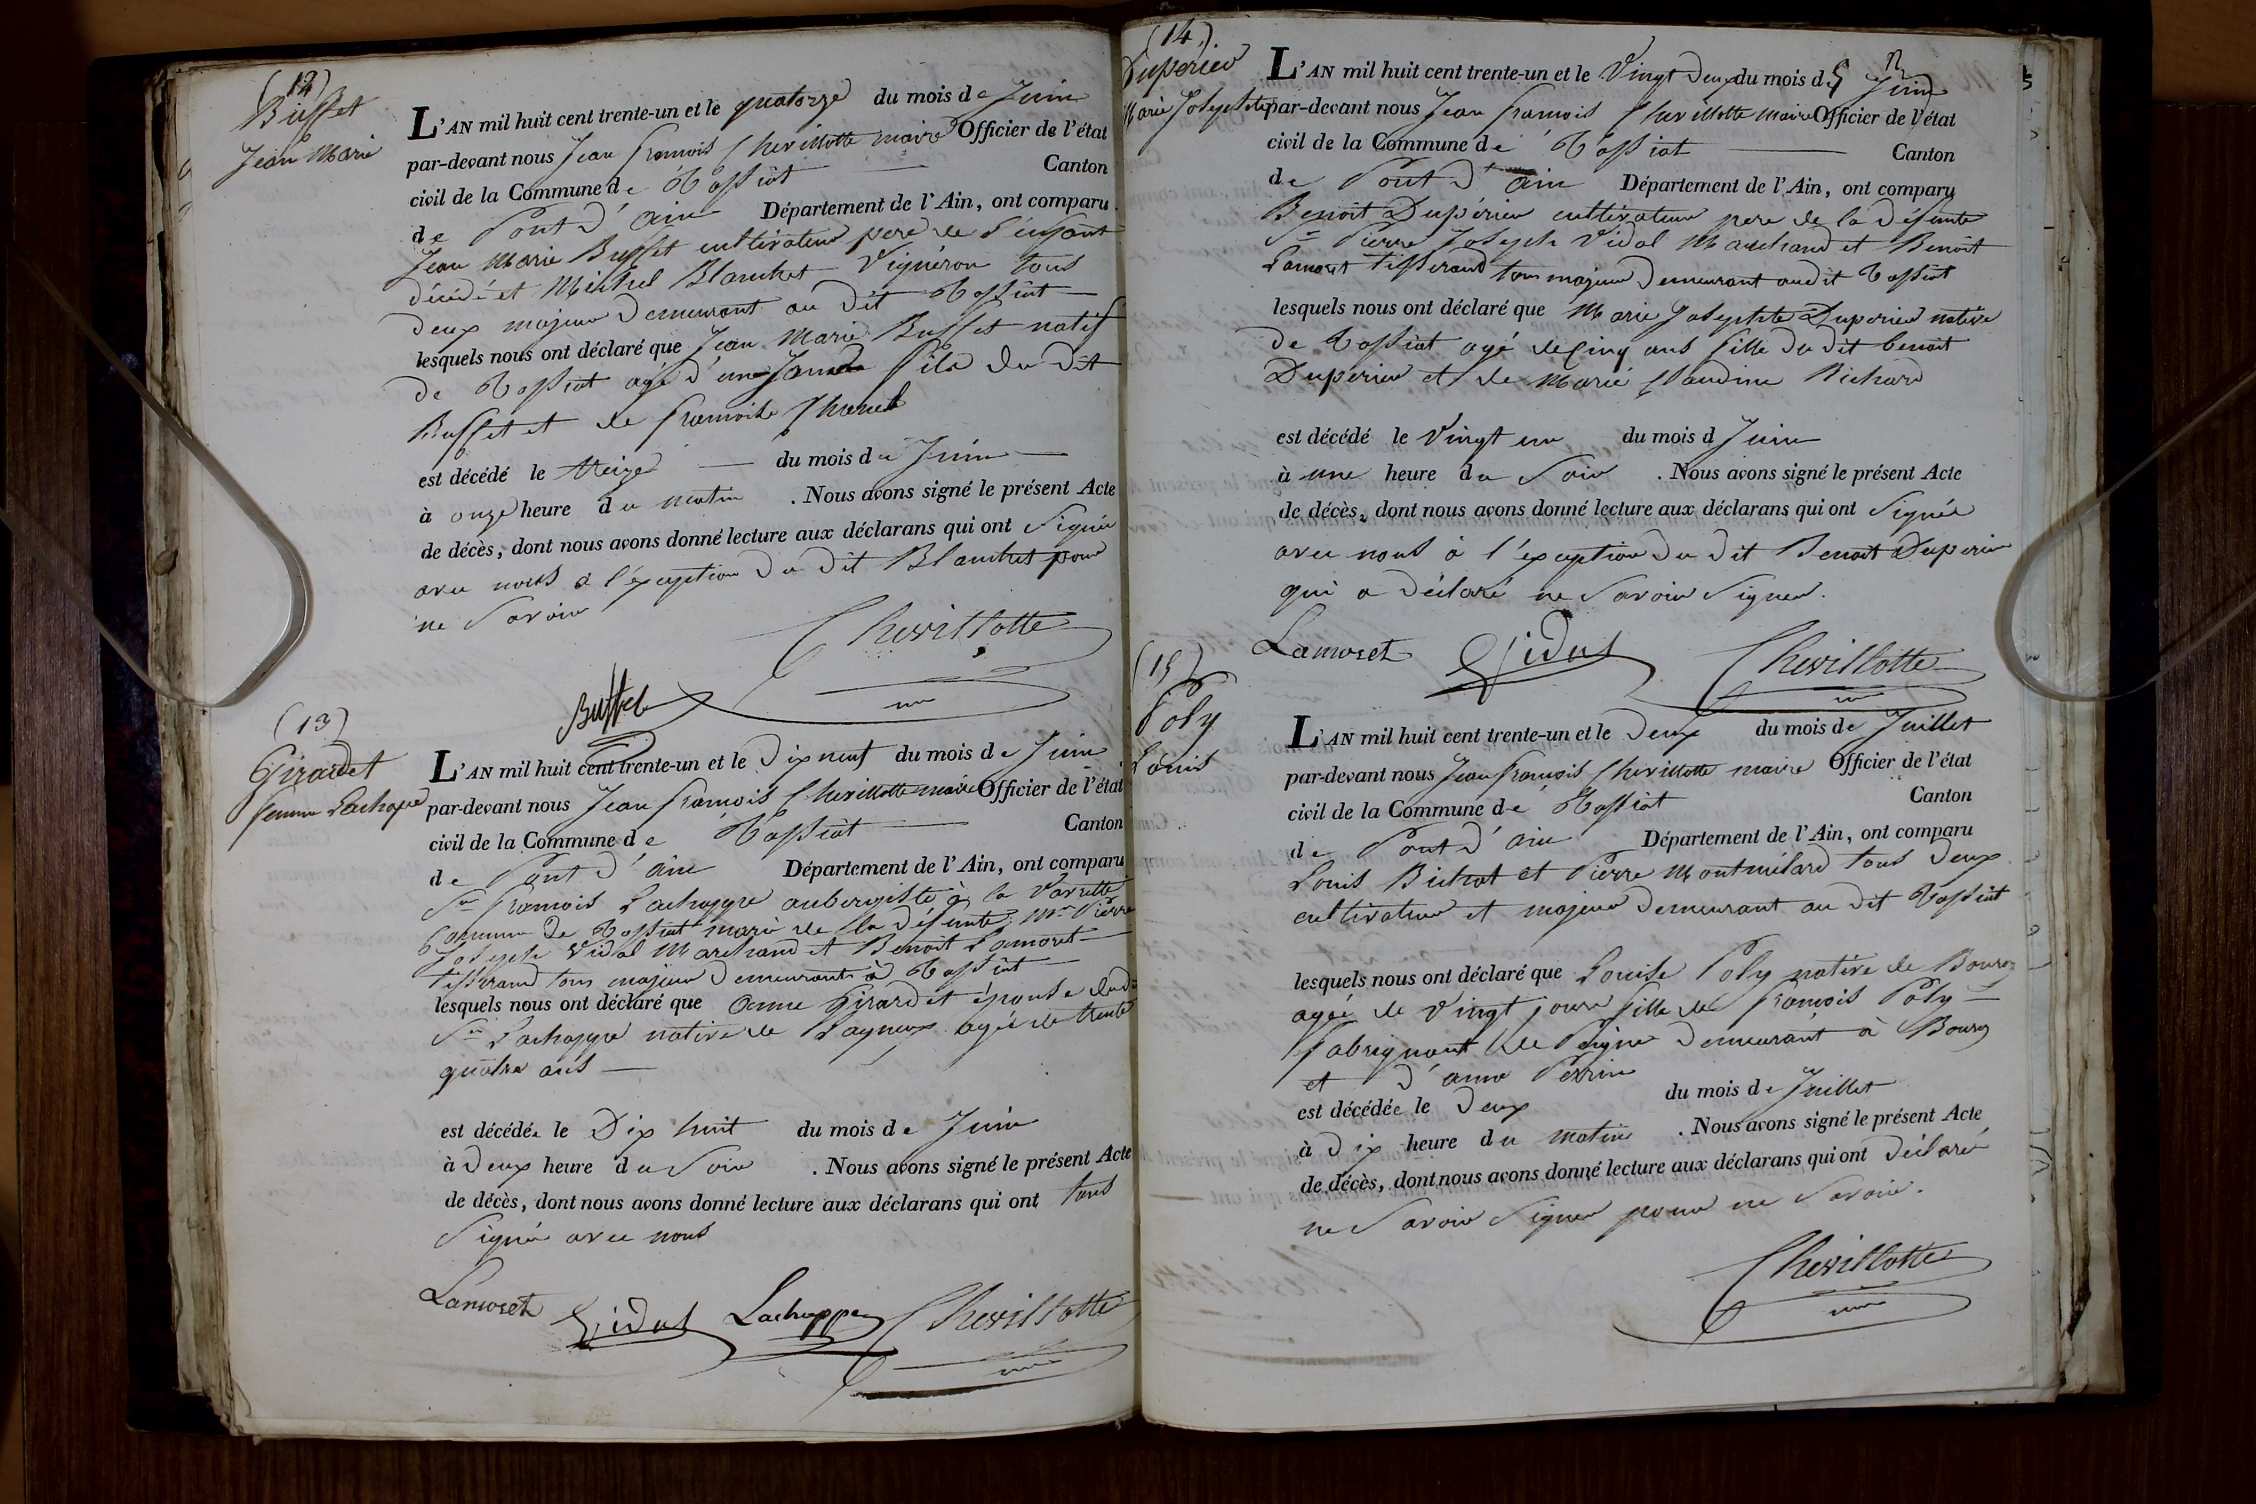 (12)
Buffet
Jean Marie
L'AN mil huit cent trente-un et le quatorze du mois de Juin
par-devant nous Jean francois Chevillotte maire Officier de l'état
civil de la Commune de Tossiat Canton
de Pont d'ain Département de l'Ain, ont comparu
Jean Marie Buffet cultivateur pere de l'enfant
décédé et Michel Blanchet Vigneron tous
deux majeur demeurant au dit Tossiat
lesquels nous ont déclaré que Jean Marie Buffet natif
de Tossiat agé d'une fils du dit
Buffet et de francoise
est décédé le treize du mois de Juin
à onze heure du matin . Nous avons signé le présent Acte
de décès, dont nous avons donné lecture aux déclarans qui ont Signée
avec nous à l'exception du dit Blanchet pour
ne Savoir
Chevillotte
Buffet
(13)
Girardet
femme Lachappe
L'AN mil huit cent trente-un et le dix neuf du mois de Juin
par-devant nous Jean francois Chevillotte maire Officier de l'état
civil de la Commune de Tossiat Canton
de Pont d'ain Département de l'Ain, ont comparu
Sr francois Lachappe aubergiste à la Vavrette
Commune de Tossiat mari de la défunte, Mr Pierre
Joseph Vidal Marchand et Benoit Lamoret
tisserand tous majeur demeurants à Tossiat
lesquels nous ont déclaré que anne Girardet épouse dudt
Sr Lachappe native de agée de trente
quatre ans
est décédée le Dix huit du mois de Juin
à Deux heure du Soir . Nous avons signé le présent Acte
de décès, dont nous avons donné lecture aux déclarans qui ont tous
Signée avec nous
Lamoret Vidal Lachappe Chevillotte
(14)
Duperier
Marie Josephte
L'AN mil huit cent trente-un et le Vingt deux du mois de Juin
par-devant nous Jean francois Chevillotte maire Officier de l'état
civil de la Commune de Tossiat Canton
de Pont d'ain Département de l'Ain, ont comparu
Benoit Dupérier cultivateur pere de la défunte
Sr Pierre Joseph Vidal Marchand et Benoit
Lamoret tisserand tous majeur demeurant audit Tossiat
lesquels nous ont déclaré que Marie Josephte Duperier native
de Tossiat agé de Cinq ans fille du dit benoit
Duperier et de Marie Claudine Richard
est décédé le Vingt un du mois d Juin
à une heure du Soir . Nous avons signé le présent Acte
de décès, dont nous avons donné lecture aux déclarans qui ont Signée
avec nous à l'exception du dit Benoit Duperier
qui a déclaré ne Savoir Signer.
Lamoret Vidal Chevillotte
(15)
Poly
Louis
L'AN mil huit cent trente-un et le deux du mois de Juillet
par-devant nous Jean francois Chevillotte maire Officier de l'état
civil de la Commune de Tossiat Canton
de Pont d'ain Département de l'Ain, ont comparu
Louis Bichat et Pierre Montmélard tous deux
cultivateur et majeur demeurant au dit Tossiat
lesquels nous ont déclaré que Louise Poly native de Bourg
agée de Vingt jours fille de francois Poly
fabriquant de Peigne demeurant à Bourg
et d'anne Perrin
est décédée le deux du mois de Juillet
à dix heure du matin . Nous avons signé le présent Acte
de décès, dont nous avons donné lecture aux déclarans qui ont déclaré
ne Savoir Signer pour ne Savoir.
Chevillotte